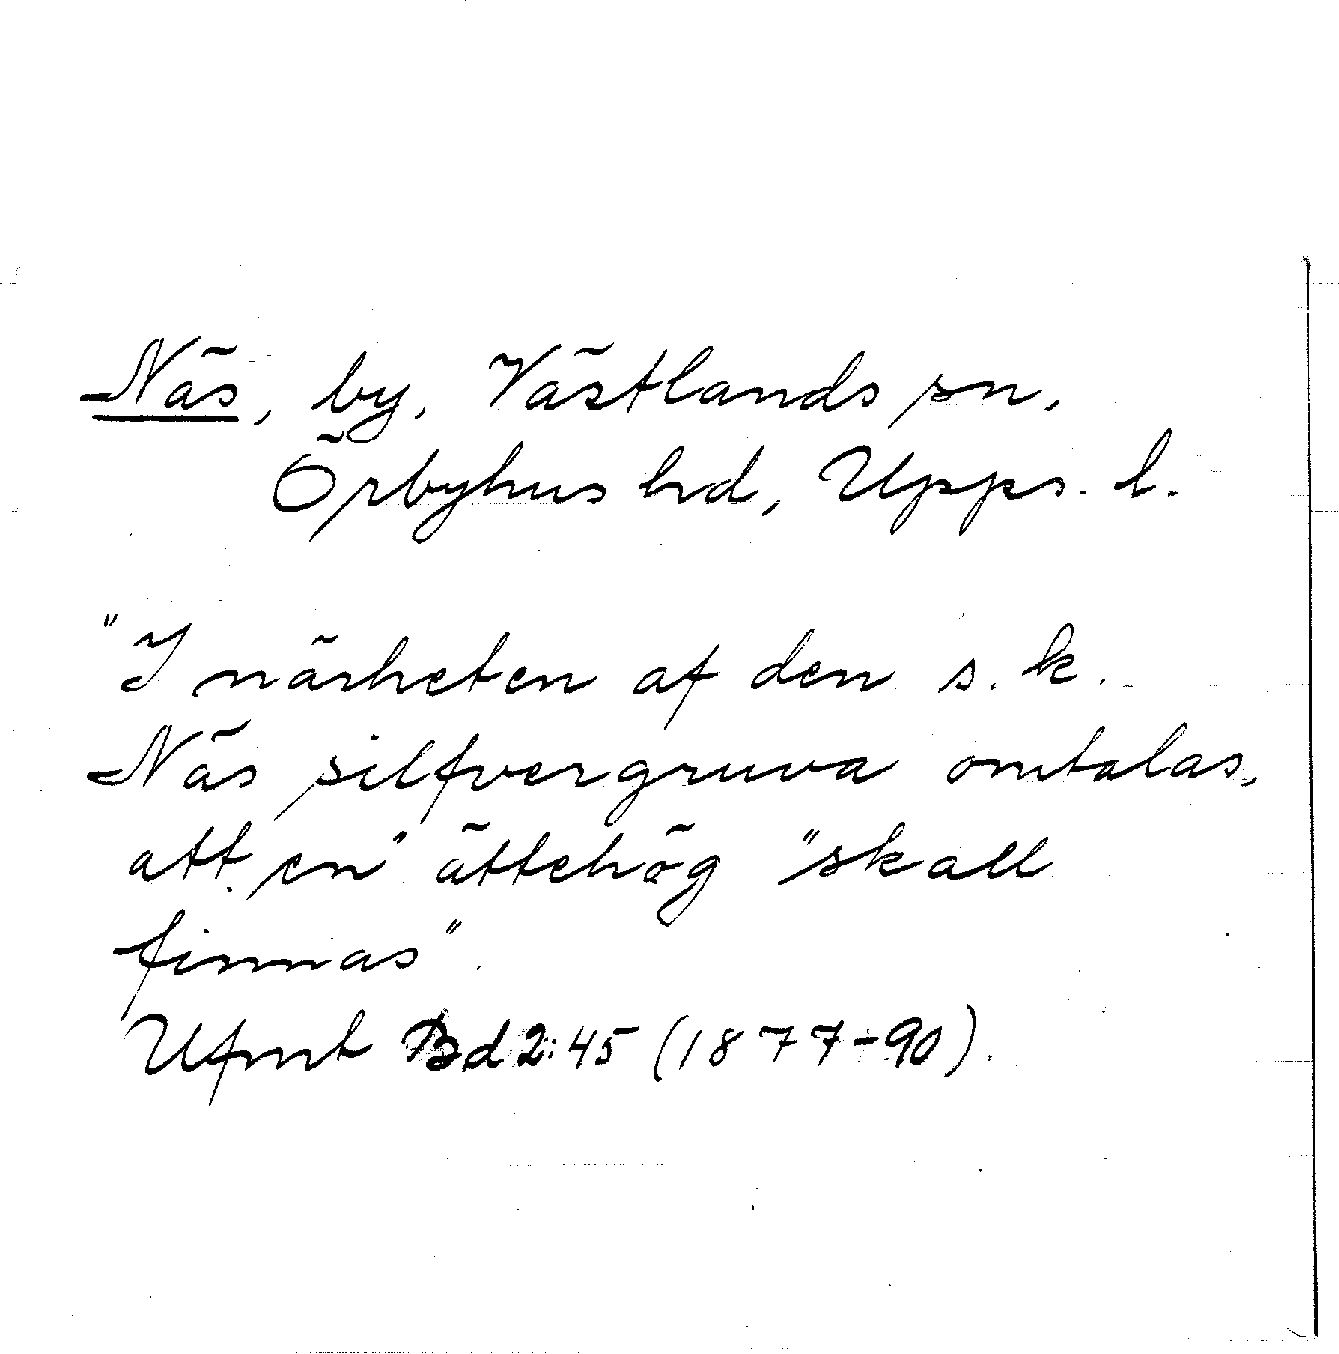 Näs, by, Västlands sn,
Örbyhus hd, Upps. l.
"I närheten af den s.k.
Näs silfvergruva omtalas,
att en" ättehög "skall
finnas".
Ufmt Bd 2:45 (1877-90).